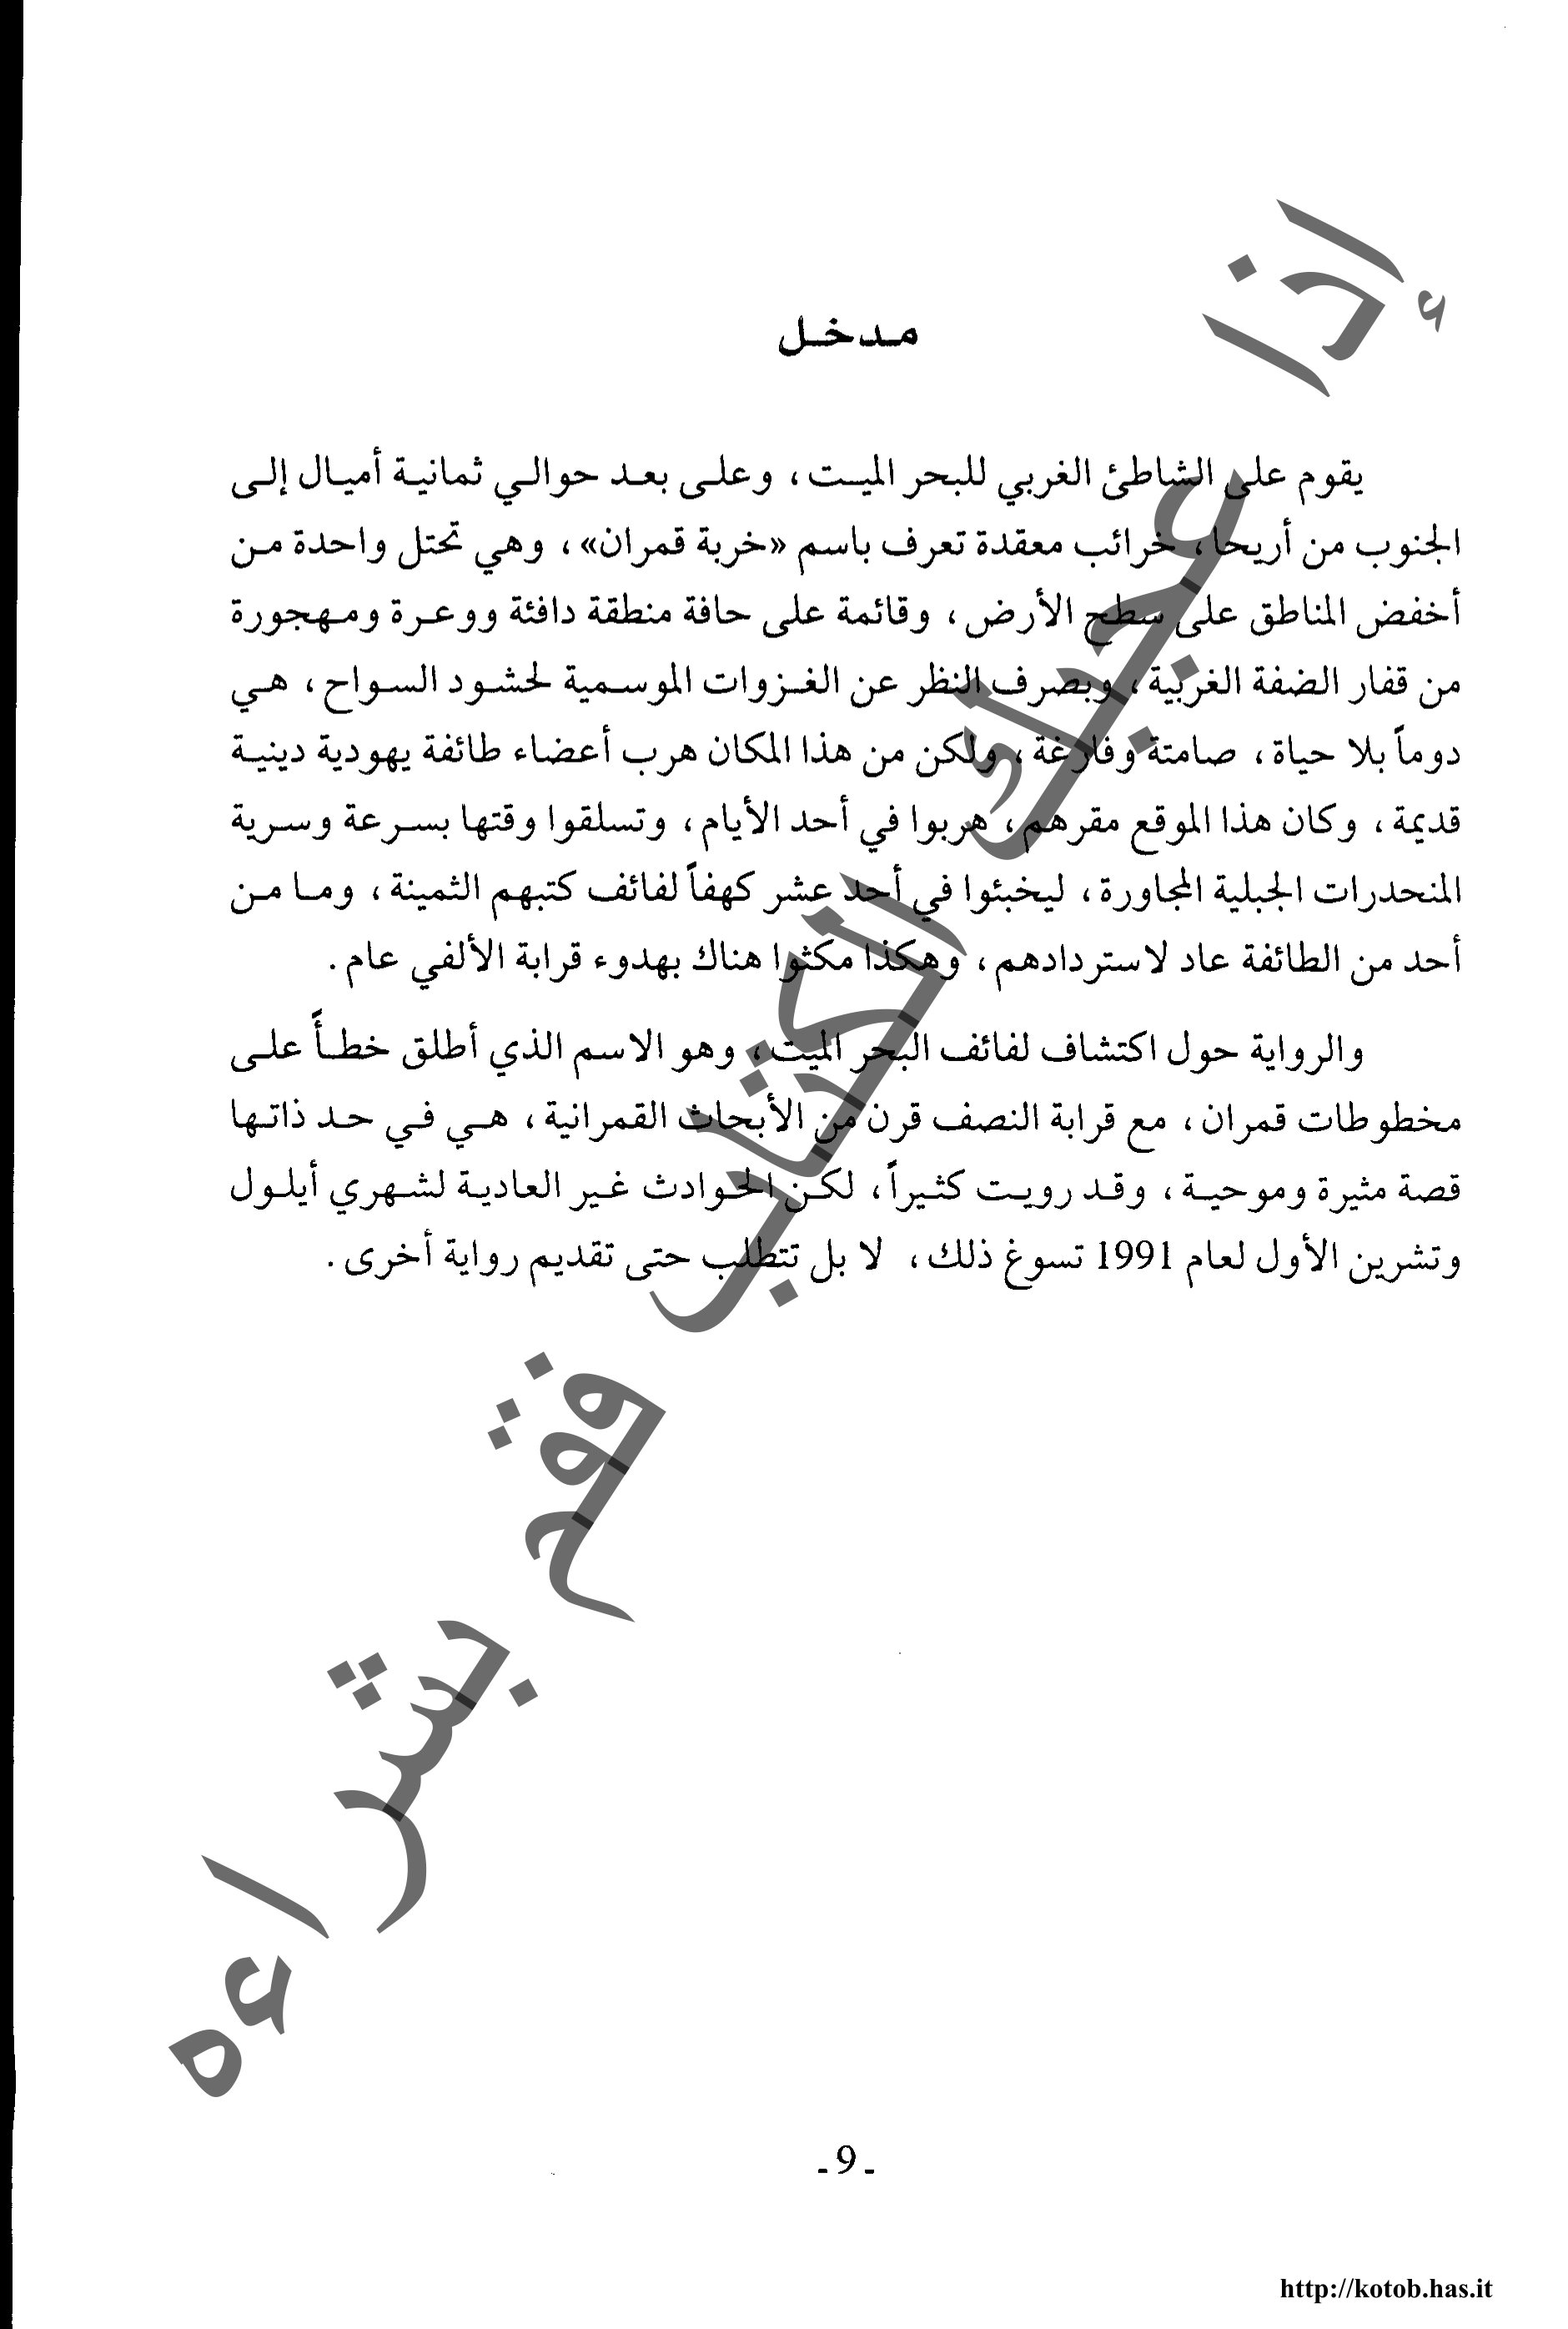 مدخل
يقوم على الشاطئ الغربي للبحر الميت، وعلى بعد حوالي ثمانية أميال إلى
الجنوب من أريحا، خرائب معقدة تعرف باسم «خربة قمران»، وهي تحتل واحدة من
أخفض المناطق على سطح الأرض، وقائمة على حافة منطقة دافئة ووعرة ومهجورة
من قفار الضفة الغربية، وبصرف النظر عن الغزوات الموسمية لحشود السواح، هي
دوماً بلا حياة، صامتة وفارغة، ولكن من هذا المكان هرب أعضاء طائفة يهودية دينية
قديمة، وكان هذا الموقع مقرهم، هربوا في أحد الأيام، وتسلقوا وقتها بسرعة وسرية
المنحدرات الجبلية المجاورة، ليخبئوا في أحد عشر كهفاً لفائف كتبهم الثمينة، وما من
أحد من الطائفة عاد لاستردادهم، وهكذا مكثوا هناك بهدوء قرابة الألفي عام.
والرواية حول اكتشاف لفائف البحر الميت، وهو الاسم الذي أطلق خطأً على
مخطوطات قمران، مع قرابة النصف قرن من الأبحاث القمرانية، هي في حد ذاتها
قصة مثيرة وموحية، وقد رويت كثيراً، لكن الحوادث غير العادية لشهري أيلول
وتشرين الأول لعام 1991 تسوغ ذلك، لا بل تتطلب حتى تقديم رواية أخرى.
إذا عجبك الكتاب قم بشراءه
- 9 -
http://kotob.has.it